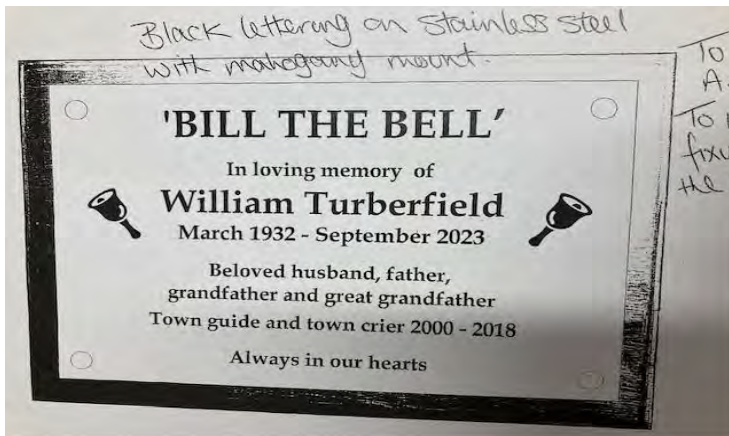 Black lettering on stainless steel
with mahogany mount.
'BILL THE BELL'
In loving memory of
William Turberfield
March 1932 - September 2023
Beloved husband, father,
grandfather and great grandfather
Town guide and town crier 2000 - 2018
Always in our hearts
To
To
the